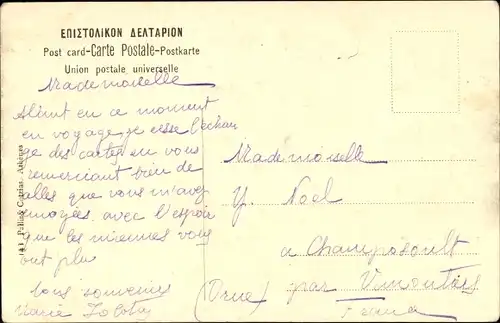 ΕΠΙΣΤΟΛΙΚΟΝ ΔΕΛΤΑΡΙΟΝ
Post card-Carte Postale-Postkarte
Union postale universelle
Mademoiselle
en ce moment
en voyage je cesse l'echan
ge des cartes en vous
remerciant bien de
celles que vous m'avez
envoyées avec l'espoir
que les miennes vous
ont plu
bons souvenirs
Marie
Mademoiselle
Y. Noel
a Champosoult
par Vimoutiers
(Orne)
141 Pallis & Cotzias Athènes